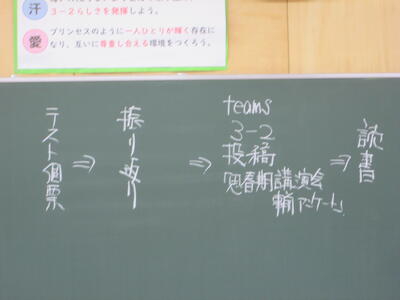 汗
3－2らしさを発揮しよう。
愛
プリンセスのように一人ひとりが輝く存在
になり、互いに尊重し合える環境をつくろう。
テスト個票
⇒
振り返り
⇒
teams
3－2
投稿
思春期講演会
アンケート」
⇒
読書